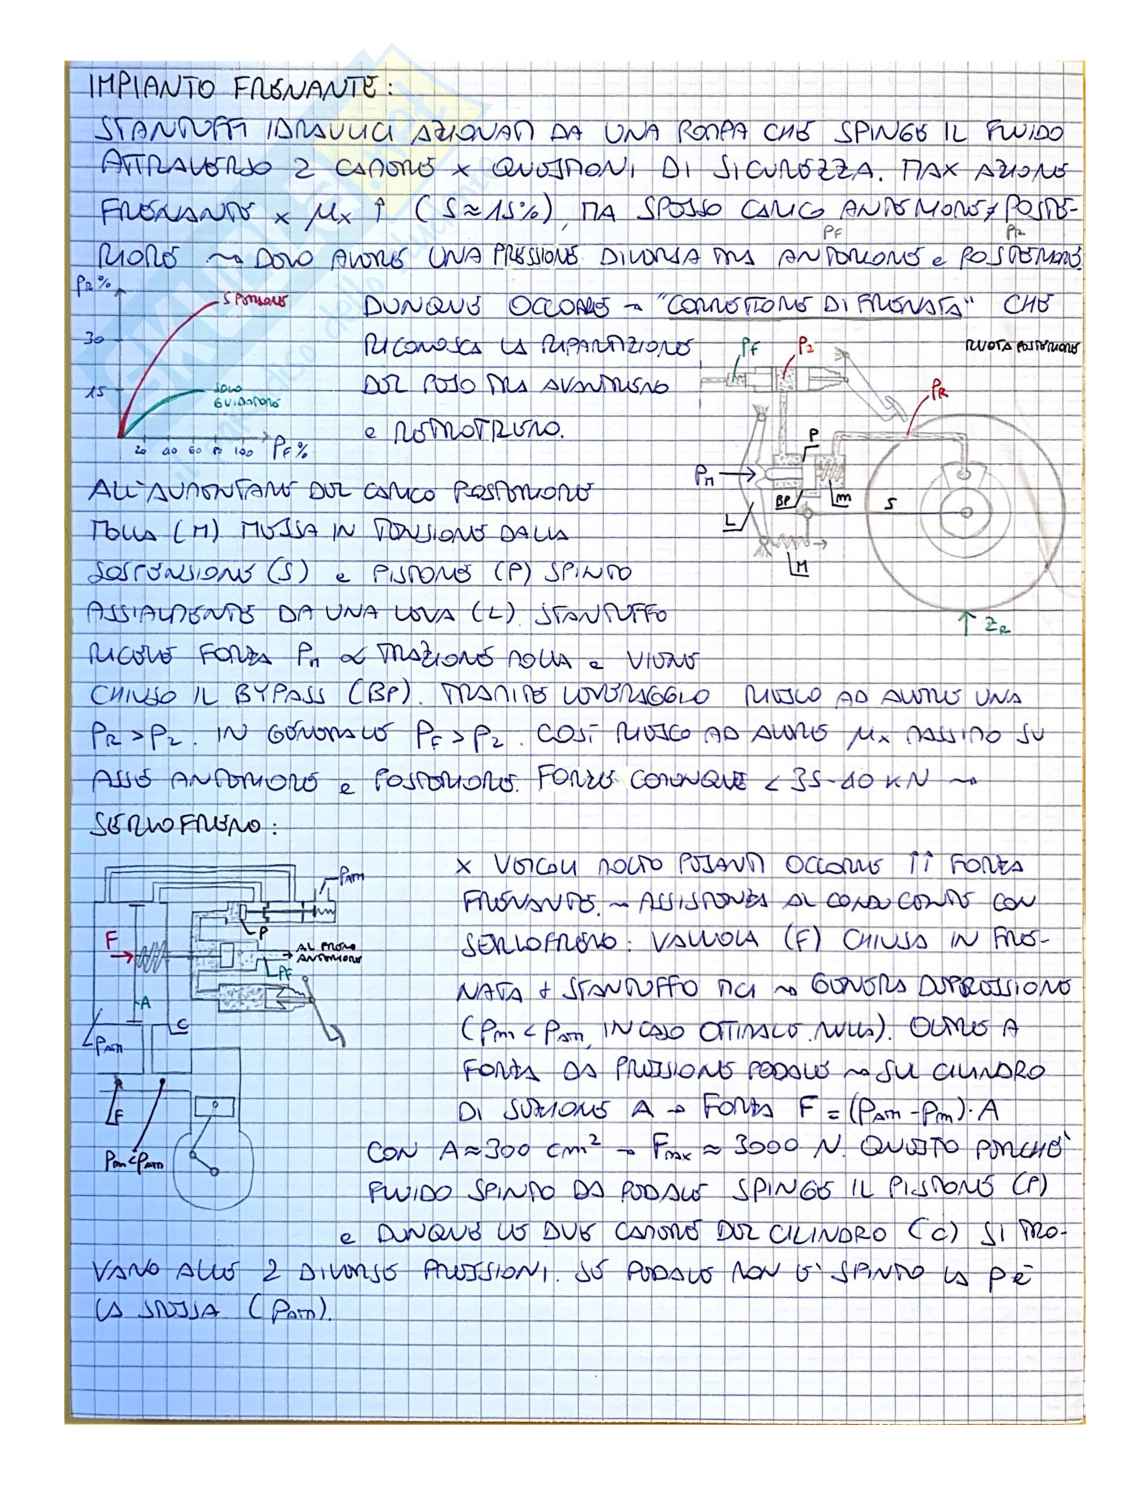 IMPIANTO FRENANTE:
STANTUFFI IDRAULICI AZIONATI DA UNA POMPA CHE SPINGE IL FLUIDO
ATTRAVERSO 2 CAMERE x QUESTIONI DI SICUREZZA. MAX AZIONE
FRENANTE x μx ↑ (S≈15%), MA SPESSO CARICO ANTERIORE ≠ POSTE-
RIORE ⇝ DEVO AVERE UNA PRESSIONE DIVERSA TRA ANTERIORE e POSTERIORE.
PF PR
PR%
5 PERSONE
30
15
SOLO
GUIDATORE
20 40 60 80 100 PF%
DUNQUE OCCORRE → "CORRETTORE DI FRENATA" CHE
RICONOSCA LA RIPARTIZIONE
DEL PESO TRA AVANTRENO
e RETROTRENO.
PF P2 RUOTA POSTERIORE
PR
P
Pm BP m S
L
M
ZR
ALL'AUMENTARE DEL CARICO POSTERIORE
MOLLA (M) MESSA IN TENSIONE DALLA
SOSPENSIONE (S) e PISTONE (P) SPINTO
ASSIALMENTE DA UNA LEVA (L). STANTUFFO
RICEVE FORZA Pm ∝ TRAZIONE MOLLA e VIENE
CHIUSO IL BYPASS (BP). TRAMITE LEVERAGGIO RIESCO AD AVERE UNA
PR > P2. IN GENERALE PF > P2. COSÌ RIESCO AD AVERE μx MASSIMO SU
ASSE ANTERIORE e POSTERIORE. FORZE COMUNQUE < 35-40 KN ⇝
SERVOFRENO:
PAM
P
F AL FRENO
ANTERIORE
PF
A
C
PAM
F
Pm<PAM
x VEICOLI MOLTO PESANTI OCCORRE ↑↑ FORZA
FRENANTE. ⇝ ASSISTENZA AL CONDUCENTE CON
SERVOFRENO: VALVOLA (F) CHIUSA IN FRE-
NATA + STANTUFFO MCI ⇝ GENERA DEPRESSIONE
(Pm < PAM, IN CASO OTTIMALE NULLA). OLTRE A
FORZA DA PRESSIONE PEDALE ⇝ SU CILINDRO
DI SEZIONE A → FORZA F = (PAM - Pm)·A
CON A≈300 cm² → Fmax ≈ 3000 N. QUESTO PERCHÉ
FLUIDO SPINTO DA PEDALE SPINGE IL PISTONE (P)
e DUNQUE LE DUE CAMERE DEL CILINDRO (C) SI TRO-
VANO ALLE 2 DIVERSE PRESSIONI. SE PEDALE NON È SPINTO LA P È
LA STESSA (PAM).